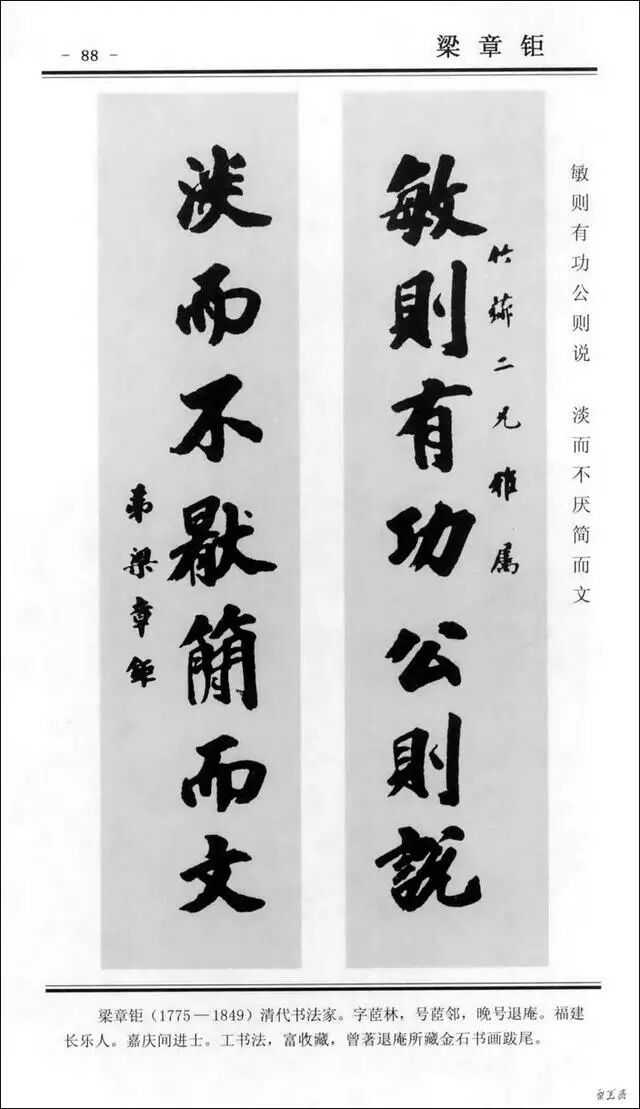 - 88 -
梁章钜
敏则有功公则说 淡而不厌简而文
敏則有功公則説
竹 二兄雅属
淡而不厭簡而文
弟梁章鉅
梁章钜（1775—1849）清代书法家。字茝林，号茝邻，晚号退庵。福建
长乐人。嘉庆间进士。工书法，富收藏，曾著退庵所藏金石书画跋尾。